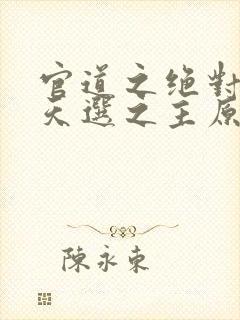 官道之绝對
天選之主原
陳永東